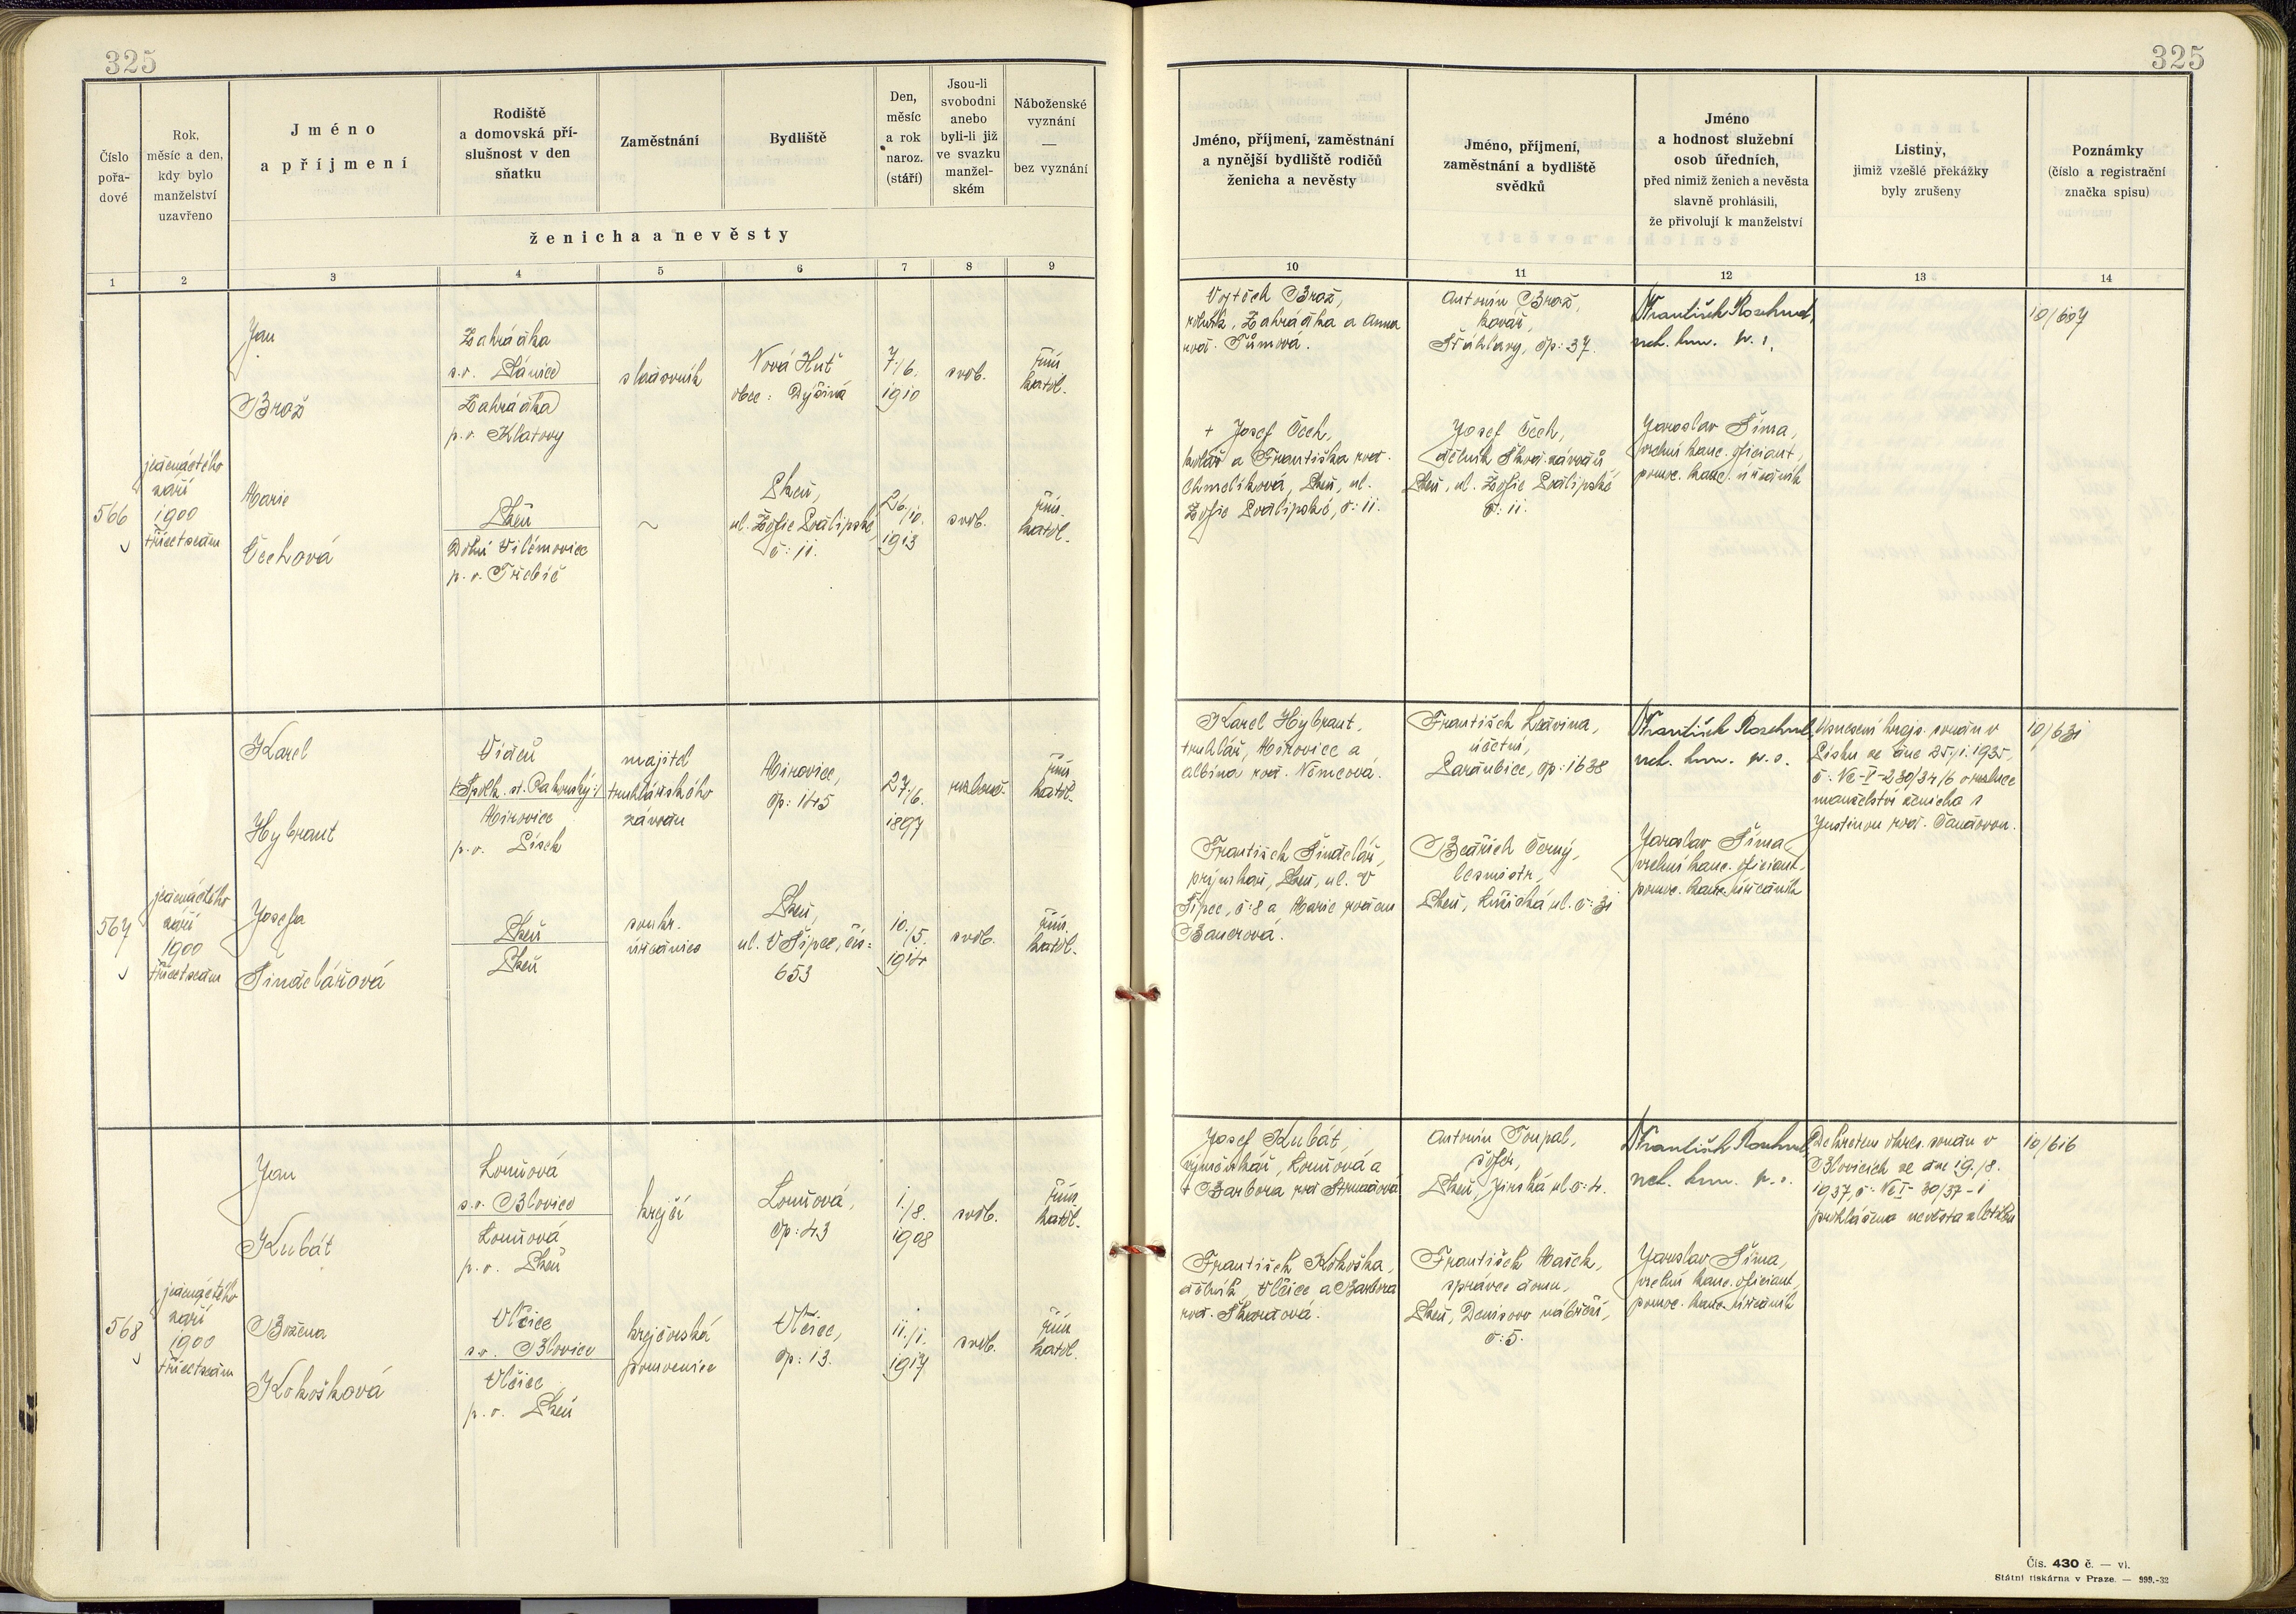 325
Číslo
pořa-
dové
Rok,
měsíc a den,
kdy bylo
manželství
uzavřeno
Jméno
a příjmení
Rodiště
a domovská pří-
slušnost v den
sňatku
Zaměstnání
Bydliště
Den,
měsíc
a rok
naroz.
(stáří)
Jsou-li
svobodni
anebo
byli-li již
ve svazku
manžel-
ském
Náboženské
vyznání
—
bez vyznání
ženicha a nevěsty
1 2 3 4 5 6 7 8 9
566
jedenáctého
září
1900
třicetsedm
Jan
Brož
Zahrádka
s.o. Plánice
Zahrádka
p.o. Klatovy
sladovník
Nová Huť
obec: Dýšina
7./6.
1910
svob.
řím.
katol.
Marie
Čechová
Plzeň
Dolní Vilémovice
p.o. Třebíč
~
Plzeň,
ul. Žofie Podlipské,
č: 11.
26./10.
1913
svob.
řím.
katol.
567
jedenáctého
září
1900
třicetsedm
Karel
Hybrant
Vídeň
Mirovice
p.o. Písek
majitel
truhlářského
závodu
Mirovice,
čp: 145
27./6.
1897
rozlouč.
řím.
katol.
Josefa
Šindelářová
Plzeň
Plzeň
soukr.
úřednice
Plzeň,
ul. V Šipce, čís:
653
10./5.
1914
svob.
řím.
katol.
568
jedenáctého
září
1900
třicetsedm
Jan
Kubát
Louňová
s.o. Blovice
Louňová
p.o. Plzeň
krejčí
Louňová,
čp: 43
1./8.
1908
svob.
řím.
katol.
Božena
Kokošková
Vlčice
s.o. Blovice
Vlčice
p.o. Plzeň
krejčovská
pomocnice
Vlčice,
čp: 13.
11./1.
1917
svob.
řím.
katol.
325
Jméno, příjmení, zaměstnání
a nynější bydliště rodičů
ženicha a nevěsty
Jméno, příjmení,
zaměstnání a bydliště
svědků
Jméno
a hodnost služební
osob úředních,
před nimiž ženich a nevěsta
slavně prohlásili,
že přivolují k manželství
Listiny,
jimiž vzešlé překážky
byly zrušeny
Poznámky
(číslo a registrační
značka spisu)
10 11 12 13 14
Vojtěch Brož,
rolník, Zahrádka a Anna
roz. Tůmová.
Antonín Brož,
kovář,
Šťáhlavy, čp: 37.
František
10/607
+ Josef Čech,
kolář a Františka roz.
Chmelíková, Plzeň, ul.
Žofie Podlipské, č: 11.
Josef Čech,
dělník Škod. závodů
Plzeň, ul. Žofie Podlipské
č: 11.
Jaroslav Šíma,
vrchní kanc. oficiant,
pomoc. kanc. úředník
Karel Hybrant,
truhlář, Mirovice a
Albína roz. Němcová.
František
účetní,
Pardubice, čp: 1638
František
Usnesení krajs. soudu v
Písku ze dne 25./1. 1935,
č: Nc-I-230/34/6 o rozluce
manželství ženicha s
Justinou roz.
10/631
František Šindelář,
Plzeň, ul. V
Šipce, č: 8 a Marie rozen
Bauerová.
Bedřich Černý,
Plzeň, č: 31
Jaroslav Šíma
vrchní kanc. oficiant,
pomoc. kanc. úředník
Josef Kubát,
Louňová a
+ Barbora roz. Strnadová
Antonín Toupal,
šofér,
Plzeň, Jirská ul. č: 4.
František
Dekretem okres. soudu v
Blovicích ze dne 19./8.
1937, č: Nc I- 30/37-1
prohlášena nevěsta zletilou
10/616
František Kokoška,
dělník, Vlčice a Barbora
roz. Škardová.
František Mašek,
správce domu,
Plzeň, Denisovo nábřeží,
č: 5.
Jaroslav Šíma,
vrchní kanc. oficiant,
pomoc. kanc. úředník
Čís. 430 č. — vl.
Státní tiskárna v Praze. — 999.-32